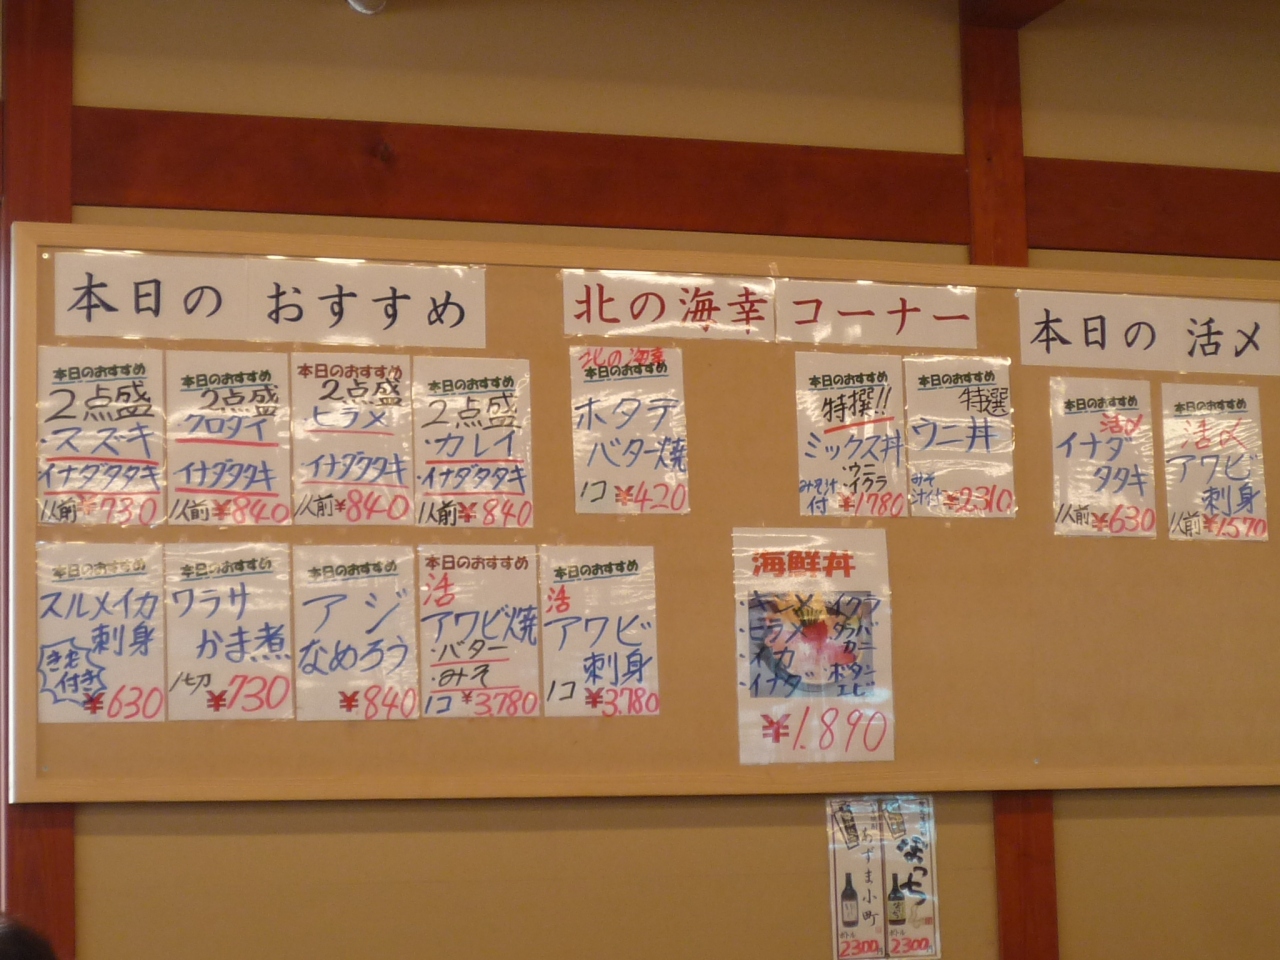 本日の おすすめ
北の海幸 コーナー
本日の 活〆
本日のおすすめ
2点盛
・スズキ
イナダタタキ
1人前¥730
本日のおすすめ
2点盛
・クロダイ
・イナダタタキ
1人前¥840
本日のおすすめ
2点盛
ヒラメ
・イナダタタキ
1人前¥840
本日のおすすめ
2点盛
・カレイ
・イナダタタキ
1人前¥840
北の海幸
本日のおすすめ
ホタテ
バター焼
1コ ¥420
本日のおすすめ
特撰!!
ミックス丼
・ウニ
・イクラ
みそ汁
付 ¥1780
本日のおすすめ
特選
ウニ丼
みそ
汁付 ¥2310
本日のおすすめ
活〆
イナダ
タタキ
1人前¥630
本日のおすすめ
活〆
アワビ
刺身
1人前¥1.570
本日のおすすめ
スルメイカ
刺身
きも
付き
¥630
本日のおすすめ
ワラサ
かま煮
1切 ¥730
本日のおすすめ
アジ
なめろう
¥840
本日のおすすめ
活
アワビ焼
・バター
・みそ
1コ ¥3.780
本日のおすすめ
活
アワビ
刺身
1コ ¥3.780
海鮮丼
・キンメ ・イクラ
・ヒラメ ・タラバ
カニ
・イカ ・ボタン
・イナダ エビ
¥1.890
あずま小町
ボトル
2300円
なっつ
ボトル
2300円